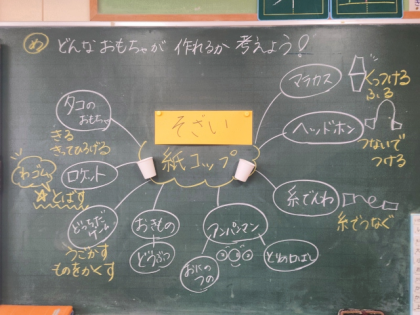 め どんなおもちゃが 作れるか 考えよう!
そざい
紙コップ
タコの
おもちゃ
きる
きってひろげる
わゴム
ロケット
とばす
どっちだ
ゲーム
うごかす
ものをかくす
おきもの
どうぶつ
アンパンマン
おにの
つの
マラカス
くっつける
ふる
ヘッドホン
つないで
つける
糸でんわ
糸でつなぐ